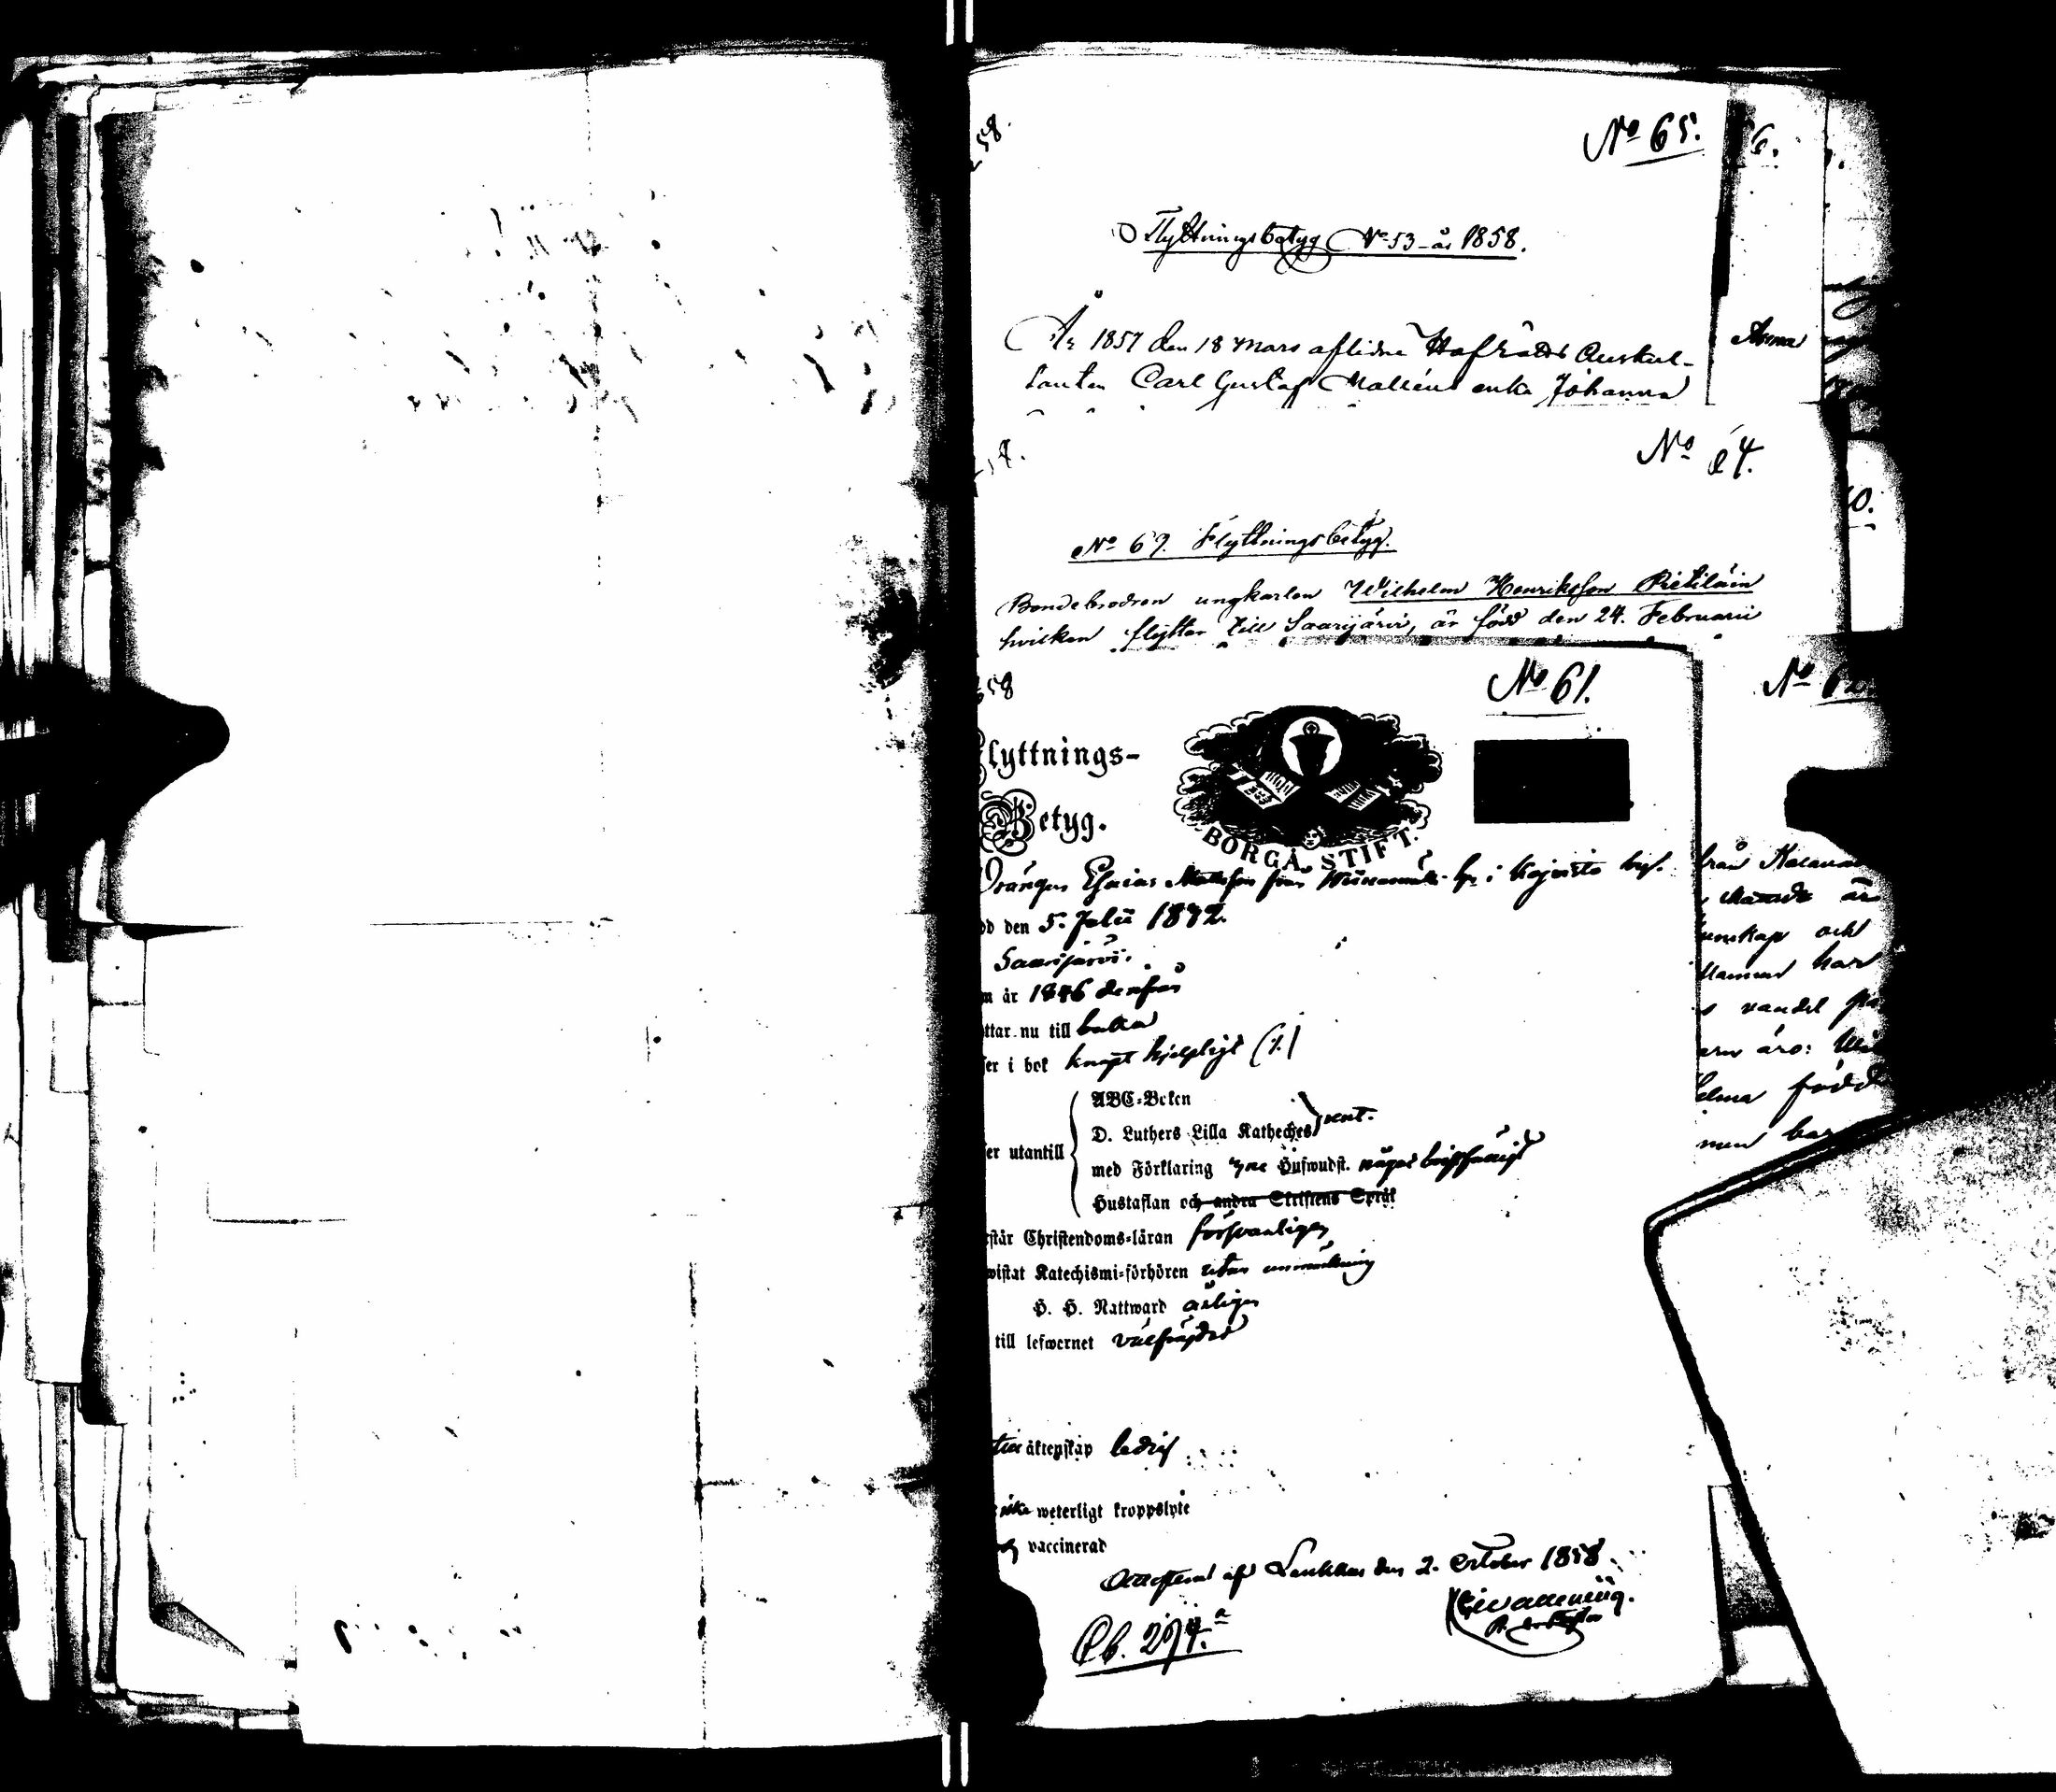 58.
No 65.
6.
Flyttningsbetyg No 53 år 1858.
År 1857 den 18 Mars aflidne Hofrätts Auskul-
tanten Carl Gustaf Malléns enka Johanna
Anna
No 64.
0.
No 69. Flyttningsbetyg.
Bondebrodren ungkarlen Wilhelm Henriksson Pietiläin
hvilken flyttar till Saarijärvi, är född den 24. Februarii
58
No 61.
No 62
Flyttnings-
Betyg.
BORGÅ STIFT.
Drängen Esaias Mattsson från i Kojvisto by.
dd den 5. Julii 1832.
Saarijärvi.
m år 1846 derifrån
ttar nu till baka
ser i bok knapt hjelpligt (/.)
ABC-Boken
D. Luthers Lilla Katheches
er utantill
med Förklaring Hufwudst. något
Hustaflan och andra Skriftens Språk
rstår Christendoms-läran försvarligen
wistat Katechismi-förhören utan anmärkning
H. H. Nattward årligen
till lefwernet välfrejdad
äktenskap ledig
icke weterligt kroppslyte
vaccinerad
Attesterad af Laukkas den 2. October 1858.
Pb. 274.a
från
kunskap och
har
vandel
äro:
elma född
men bar